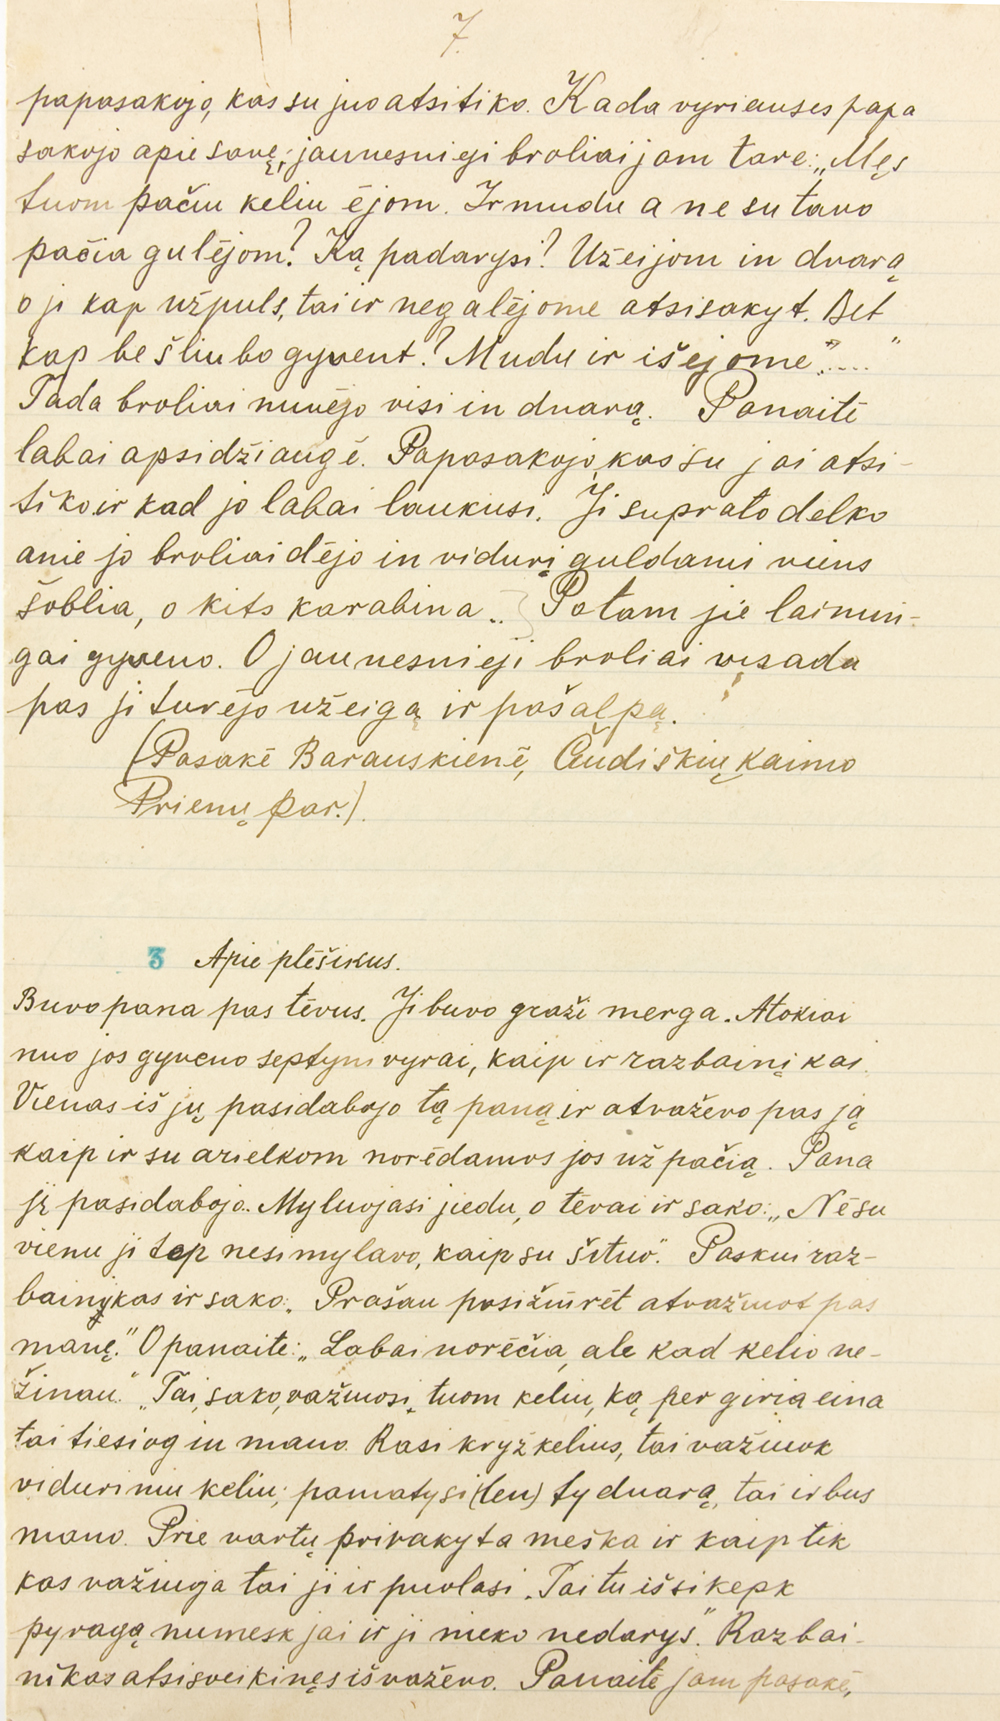 7.
papasakojo, kas su juo atsitiko. Kada vyriauses papa
sakojo apie savę, jaunesnieji broliai jam tarė: „Męs
tuom pačiu keliu ėjom. Ir mudu a ne su tavo
pačia gulėjom? Ką padarysi? Užeijom in dvarą
o ji kap užpuls, tai ir negalėjome atsisakyt. Bet
kap be šliubo gyvent? Mudu ir išejome"....."
Tada broliai nuvėjo visi in dvarą. Panaitė
labai apsidžiaugė. Papasakojo, kas su jai atsi-
tiko ir kad jo labai laukusi. Ji suprato delko
anie jo broliai dėjo in vidurį guldami viens
šoblia, o kits karabina.. Potam jie laimin-
gai gyveno. O jaunesnieji broliai visada
pas jį turėjo užeigą ir pašalpą.
(Pasakė Barauskienė, Čiudiškių kaimo
Prienų par.).
3 Apie plėšikus.
Buvo pana pas tėvus. Ji buvo graži merga. Atokiai
nuo jos gyveno septyni vyrai, kaip ir razbainįkai.
Vienas iš jų pasidabojo tą paną ir atvaževo pas ją
kaip ir su arielkom norėdamos jos už pačią. Pana
jį pasidabojo. Myluojasi jiedu, o tėvai ir sako: „Nė su
vienu ji tep nesimylavo, kaip su šituo". Paskui raz-
bainykas ir sako: Prašau pasižiūrėt atvažiuot pas
manę." O panaitė: „Labai norėčia, ale kad kelio ne-
žinau." „Tai, sako, važiuosi tuom keliu, ką per girią eina
tai tiesiog in mano. Rasi kryžkelius, tai važiuok
viduriniu keliu; pamatysi (ten) ty dvarą, tai ir bus
mano. Prie vartų prirakyta meška ir kaip tik
kas važiuoja tai ji ir puolasi. Tai tu išsikepk
pyragą numesk jai ir ji nieko nedarys". Razbai-
nikas atsisveikinęs išvaževo. Panaitė jam pasakė,